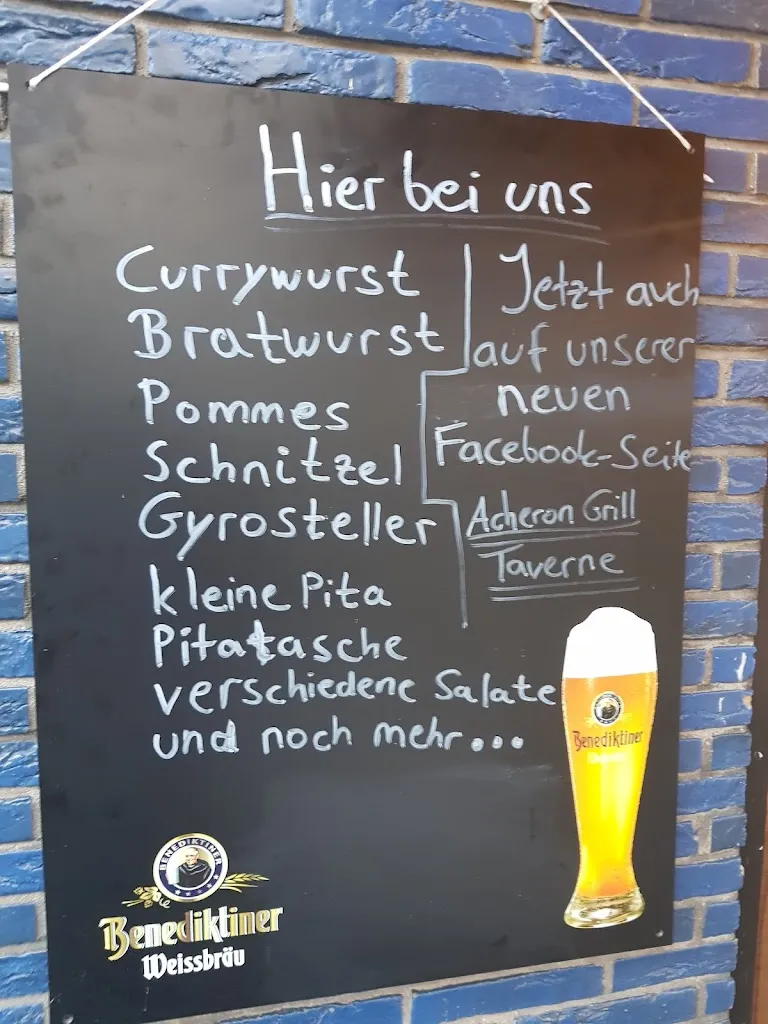 Hier bei uns
Currywurst
Bratwurst
Pommes
Schnitzel
Gyrosteller
kleine Pita
Pitatasche
verschiedene Salate
und noch mehr...
Jetzt auch
auf unserer
neuen
Facebook-Seite
Acheron Grill
Taverne
Benediktiner
BENEDIKTINER
Benediktiner
Weissbräu